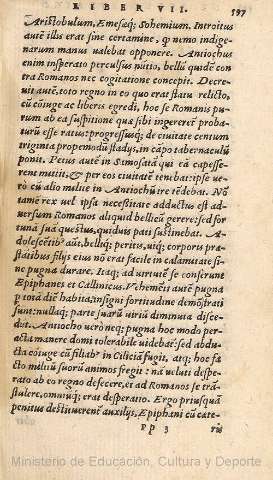 LIBER VII. 597
Aristobulum, Emesæq; Sohemium. Introitus
autē illis erat sine certamine, q nemo indige-
narum manus ualebat opponere. Antiochus
enim insperato perculsus nūtio, bellū quidē con
tra Romanos nec cogitatione concepit. Decre-
uit autē, toto regno in eo quo erat statu relicto,
cū cōiuge ac liberis egredi, hoc se Romanis pu-
rum ab ea suspitione qua sibi ingereret proba-
turū esse ratus: progressusq; de ciuitate centum
triginta propemodū stadijs, in cāpo tabernaculū
ponit. Petus autē in Simosatā qui eā capesse-
rent mittit, & per eos ciuitatē tenebat: ipse ue-
rò cū alio milite in Antiochū ire tēdebat. Nō
tamē rex uel ipsa necessitate adductus est ad-
uersum Romanos aliquid bellicū gerere: sed for
tunā suā questus, quiduis pati sustinebat. A-
dolescētib' aūt, bellíq; peritis, uiq; corporis præ-
stātibus filijs eius nō erat facile in calamitate si-
ne pugna durare. Itaq; ad uirtutē se conserunt
Epiphanes et Callinicus. Vehemēti autē pugna
p totā diē habita, insigni fortitudine demōstrati
sunt: nullaq; parte suarū uiriū diminuta disce-
dūt. Antiocho uerò nec pugna hoc modo per-
acta manere domi tolerabile uidebat: sed abdu-
cta cōiuge cū filiab' in Ciliciā fugit, atq; hoc fa
cto militū suorū animos fregit: nā ueluti despe-
rato ab eo regno defecere, et ad Romanos se trā-
stulere, omniūq; erat desperatio. Ergo priusquā
penitus destituerent auxilijs, Epiphani cū cæte-
PP 3 ris
Ministerio de Educación, Cultura y Deporte